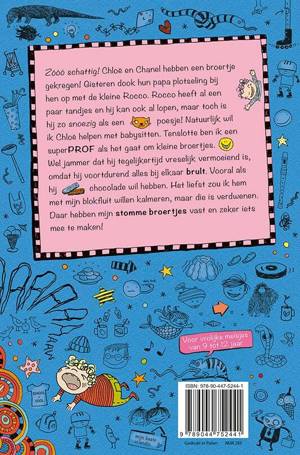 Zóóó schattig! Chloé en Chanel hebben een broertje
gekregen! Gisteren dook hun papa plotseling bij
hen op met de kleine Rocco. Rocco heeft al een
paar tandjes en hij kan ook al lopen, maar toch is
hij zo snoezig als een poesje! Natuurlijk wil
ik Chloé helpen met babysitten. Tenslotte ben ik een
superPROF als het gaat om kleine broertjes.
Wel jammer dat hij tegelijkertijd vreselijk vermoeiend is,
omdat hij voortdurend alles bij elkaar brult. Vooral als
hij chocolade wil hebben. Het liefst zou ik hem
met mijn blokfluit willen kalmeren, maar die is verdwenen.
Daar hebben mijn stomme broertjes vast en zeker iets
mee te maken!
Voor vrolijke meisjes
van 9 tot 12 jaar
ISBN: 978-90-447-5244-1
9 789044 752441